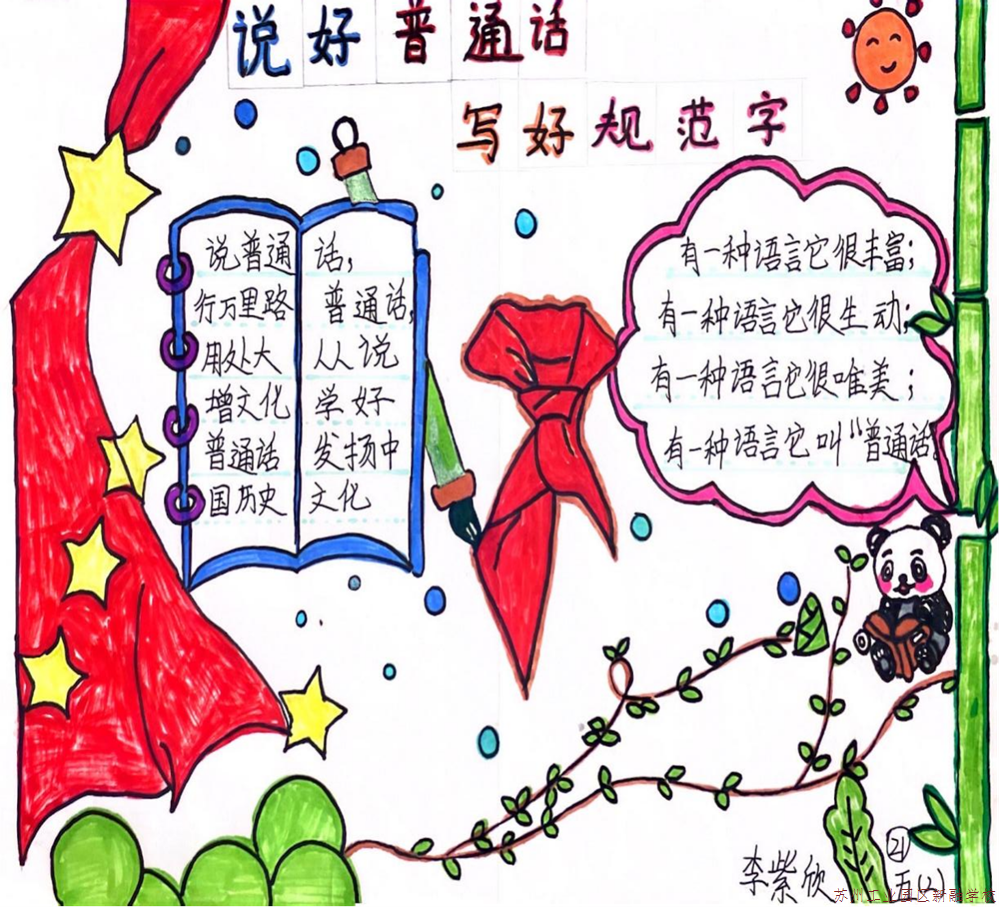 说好普通话
写好规范字
说普通话,
行万里路 普通话,
用处大 人人说
增文化 学好
普通话 发扬中
国历史 文化
有一种语言它很丰富;
有一种语言它很生动;
有一种语言它很唯美;
有一种语言它叫“普通话
李紫欣
21
五(2)
苏州工业园区新融学校